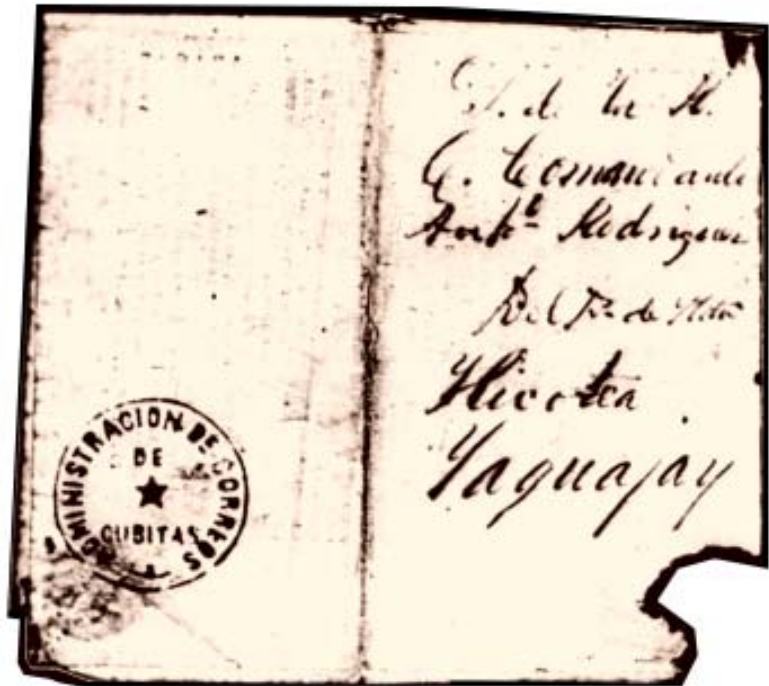 ADMINISTRACION DE CORREOS
DE
CUBITAS
S. de la R.
C. Comandante
Rodriguez
Del
de
Hicotea
Yaguajay